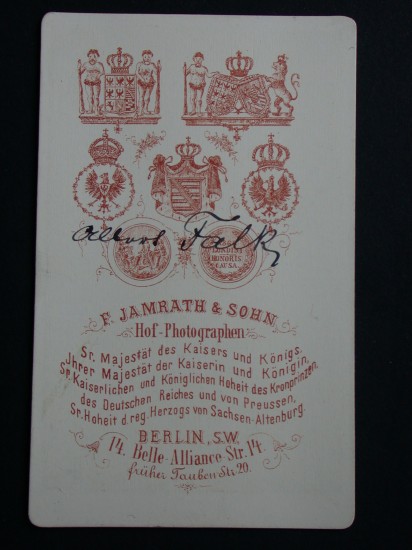 Albert Falk
LONDINI
HONORIS
CAUSA.
F. JAMRATH & SOHN
Hof-Photographen
Sr. Majestät des Kaisers und Königs.
Ihrer Majestät der Kaiserin und Königin,
Sr. Kaiserlichen und Königlichen Hoheit des Kronprinzen,
des Deutschen Reiches und von Preussen,
Sr. Hoheit d reg. Herzogs von Sachsen-Altenburg.
BERLIN, S.W.
14. Belle-Alliance-Str. 14.
früher Tauben-Str. 20.